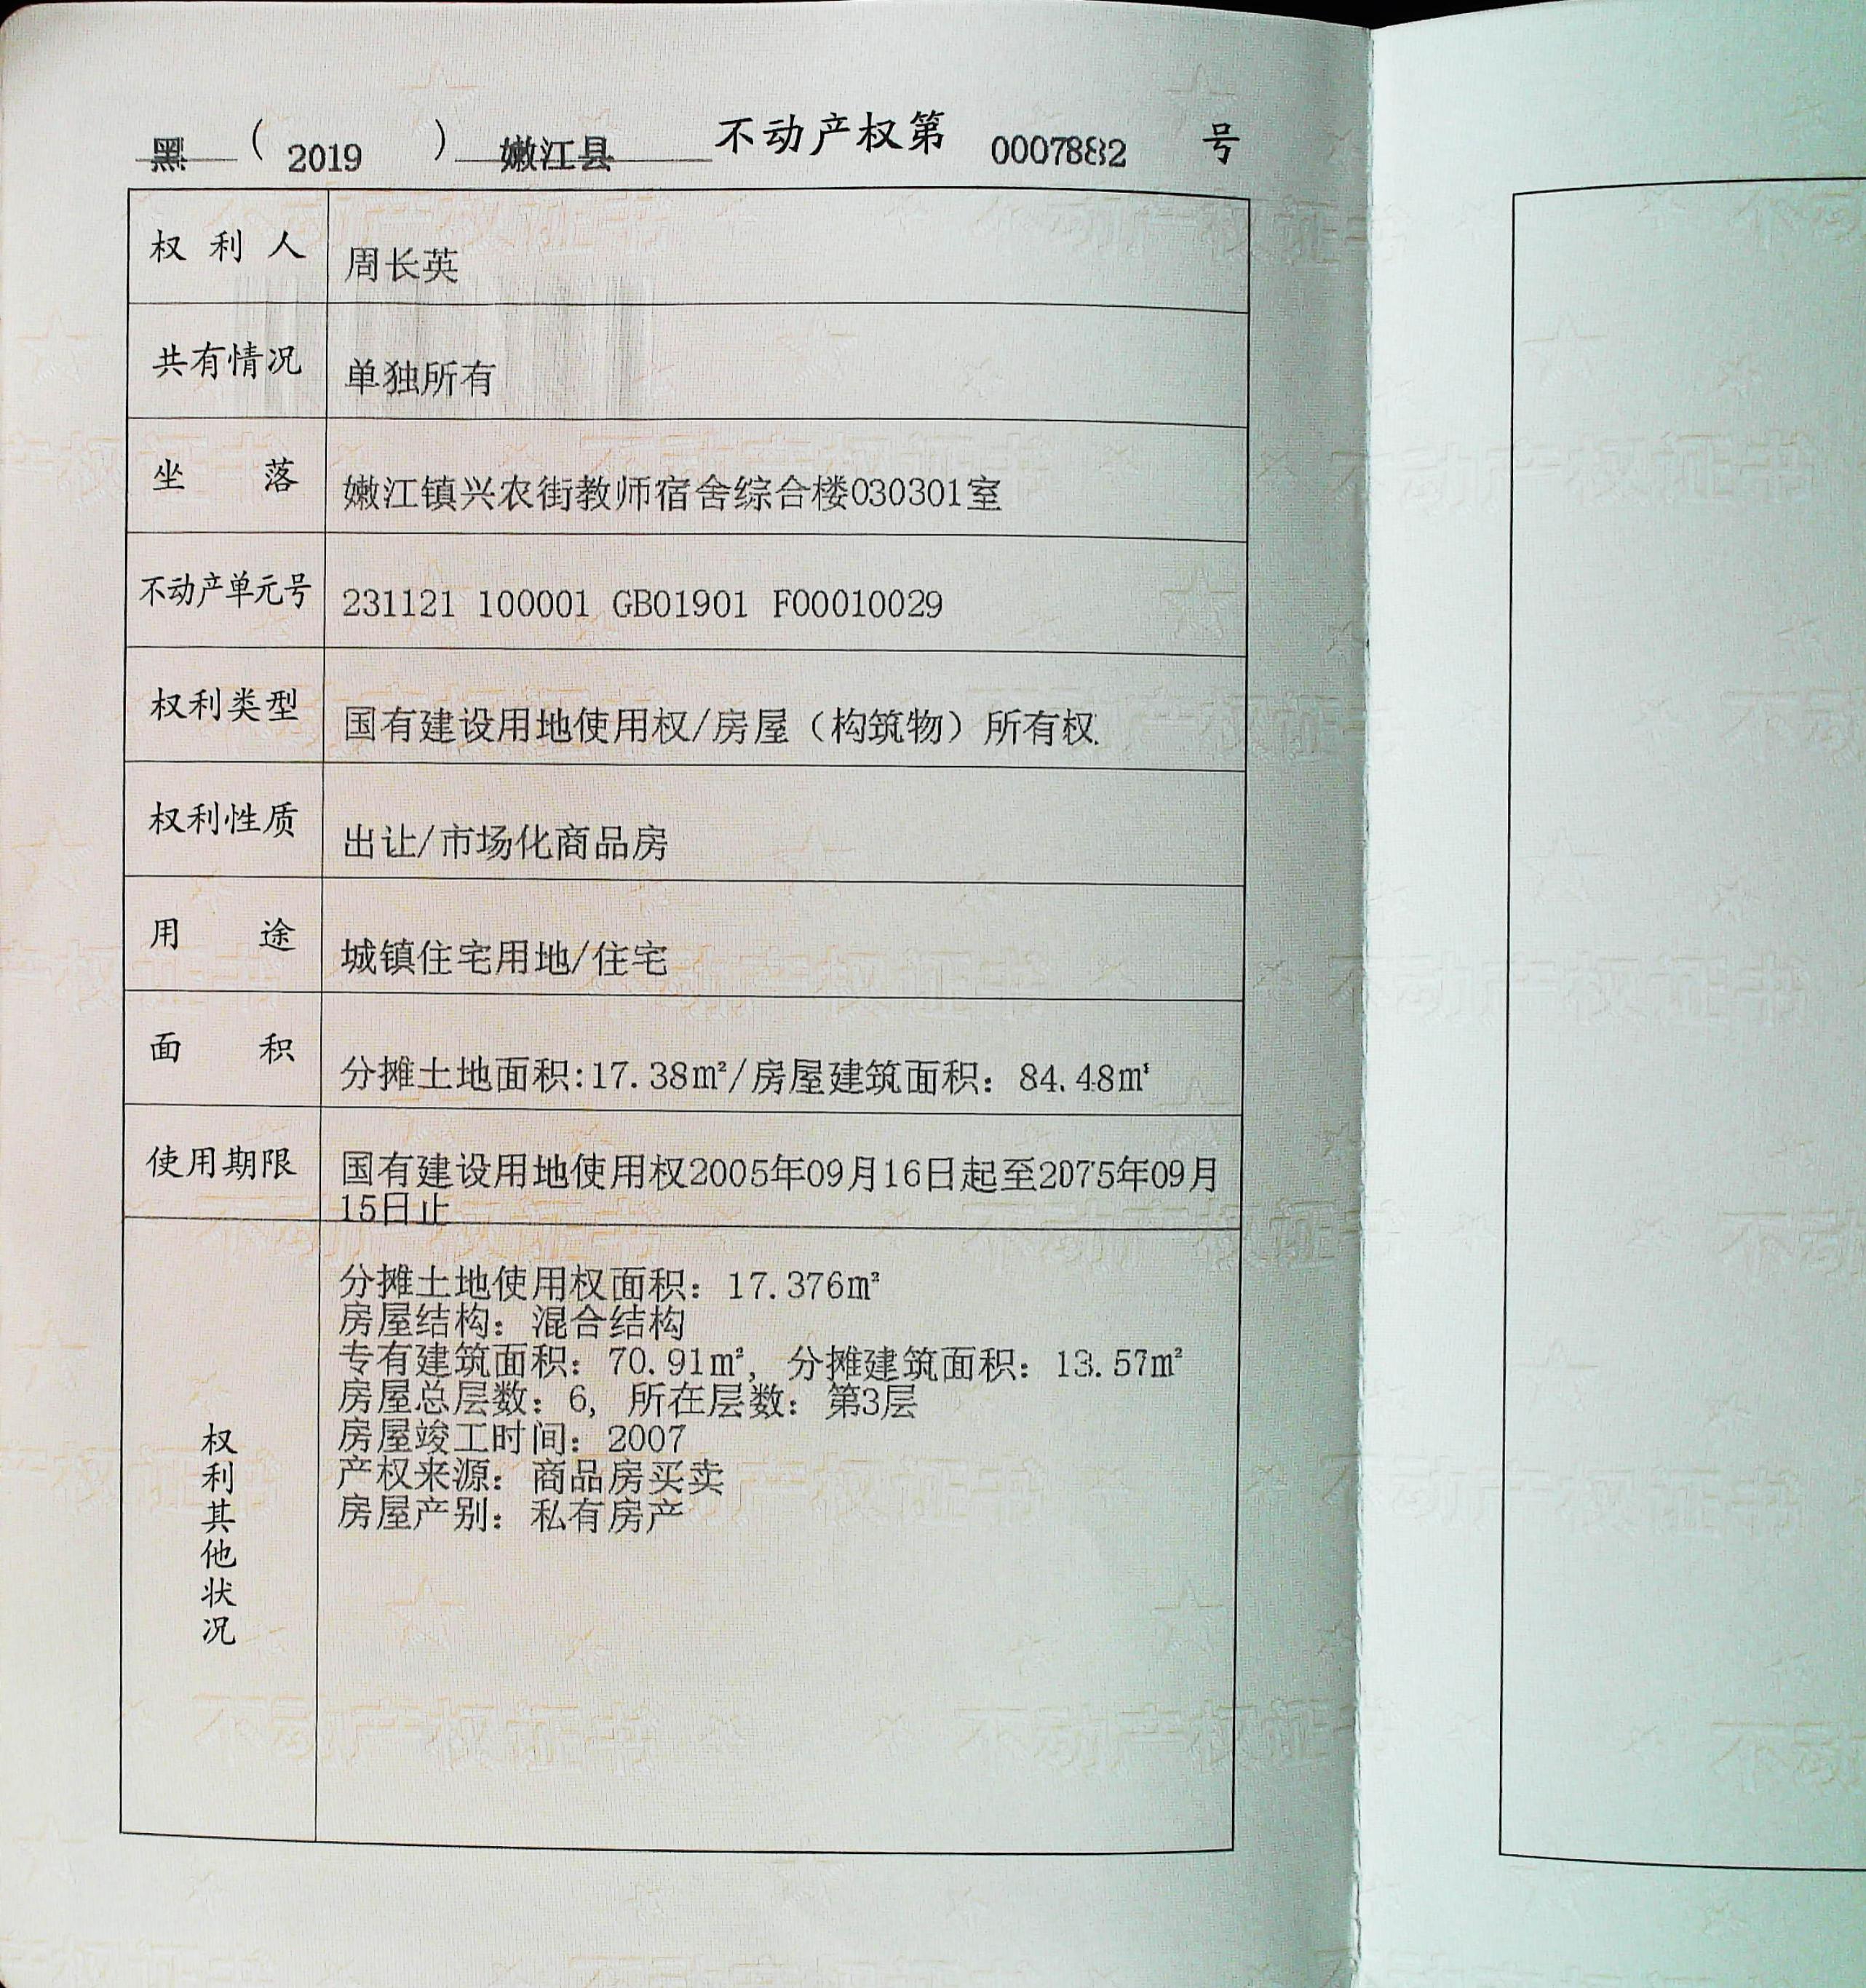 黑（2019）嫩江县 不动产权第 0007882 号
权利人 周长英
共有情况 单独所有
坐落 嫩江镇兴农街教师宿舍综合楼030301室
不动产单元号 231121 100001 GB01901 F00010029
权利类型 国有建设用地使用权/房屋（构筑物）所有权
权利性质 出让/市场化商品房
用途 城镇住宅用地/住宅
面积 分摊土地面积:17.38㎡/房屋建筑面积：84.48㎡
使用期限 国有建设用地使用权2005年09月16日起至2075年09月
15日止
权利其他状况
分摊土地使用权面积：17.376㎡
房屋结构：混合结构
专有建筑面积：70.91㎡，分摊建筑面积：13.57㎡
房屋总层数：6，所在层数：第3层
房屋竣工时间：2007
产权来源：商品房买卖
房屋产别：私有房产
不动产权证书